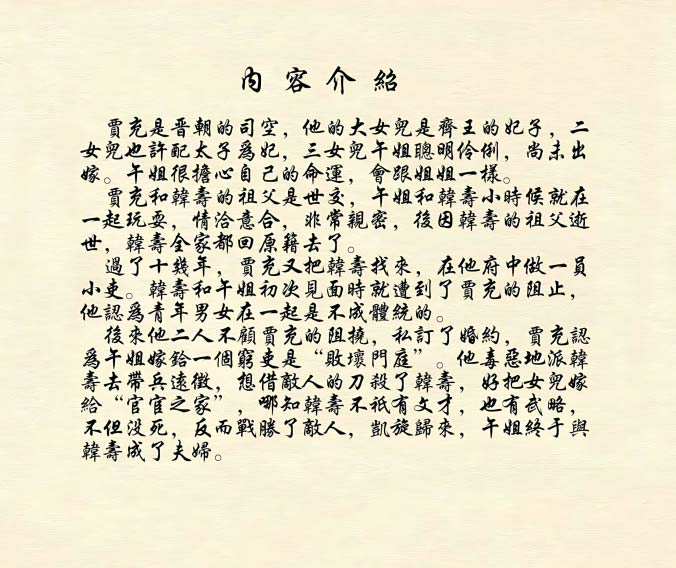 內容介紹
賈充是晋朝的司空，他的大女兒是齊王的妃子，二
女兒也許配太子爲妃，三女兒午姐聰明伶俐，尚未出
嫁。午姐很擔心自己的命運，會跟姐姐一樣。
賈充和韓壽的祖父是世交，午姐和韓壽小時候就在
一起玩耍，情洽意合，非常親密，後因韓壽的祖父逝
世，韓壽全家都回原籍去了。
過了十幾年，賈充又把韓壽找來，在他府中做一員
小吏。韓壽和午姐初次見面時就遭到了賈充的阻止，
他認爲青年男女在一起是不成體統的。
後來他二人不顧賈充的阻撓，私訂了婚約，賈充認
爲午姐嫁給一個窮吏是“敗壞門庭”。他毒惡地派韓
壽去帶兵遠徵，想借敵人的刀殺了韓壽，好把女兒嫁
給“官宦之家”，哪知韓壽不祇有文才，也有武略，
不但没死，反而戰勝了敵人，凱旋歸來，午姐終于與
韓壽成了夫婦。